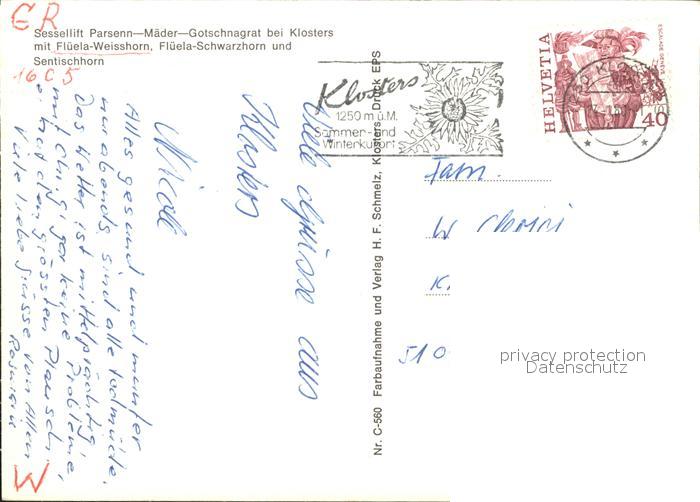 GR
Sessellift Parsenn—Mäder—Gotschnagrat bei Klosters
mit Flüela-Weisshorn, Flüela-Schwarzhorn und
Sentischhorn
16 C 5
Viele Grüsse aus
Klosters
Nicole
Alles gesund und munter
nur abends sind alle todmüde.
Das Wetter ist mittelprächtig,
gar keine Probleme,
hat den grössten Plausch.
Viele liebe Grüsse von Allen
W
Nr. C-560 Farbaufnahme und Verlag H. F. Schmelz, Klosters Druck EPS
Klosters
1250 m ü.M.
Sommer- und
Winterkurort
HELVETIA
ESCALADE GENÈVE
40
Fam.
W
K.
510
privacy protection
Datenschutz